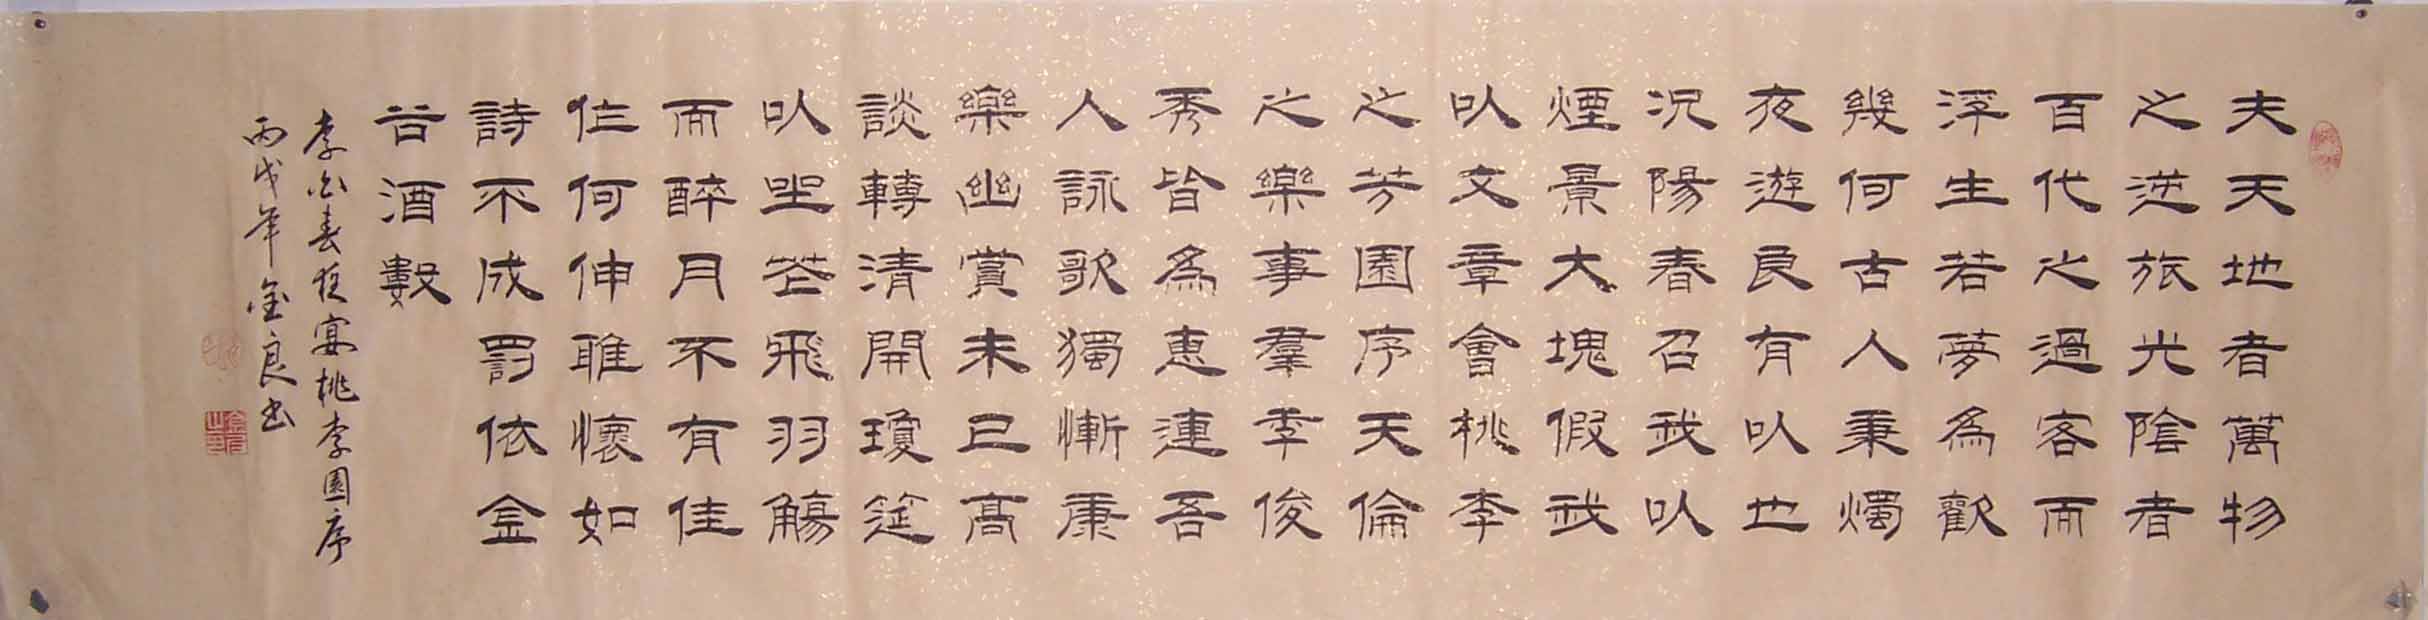 夫天地者萬物
之逆旅光陰者
百代之過客而
浮生若夢為歡
幾何古人秉燭
夜遊良有以也
況陽春召我以
煙景大塊假我
以文章會桃李
之芳園序天倫
之樂事羣季俊
秀皆為惠連吾
人詠歌獨慚康
樂幽賞未已高
談轉清開瓊筵
以坐花飛羽觴
而醉月不有佳
作何伸雅懷如
詩不成罰依金
谷酒數
李白春夜宴桃李園序
丙戌年 金良书
金良之印